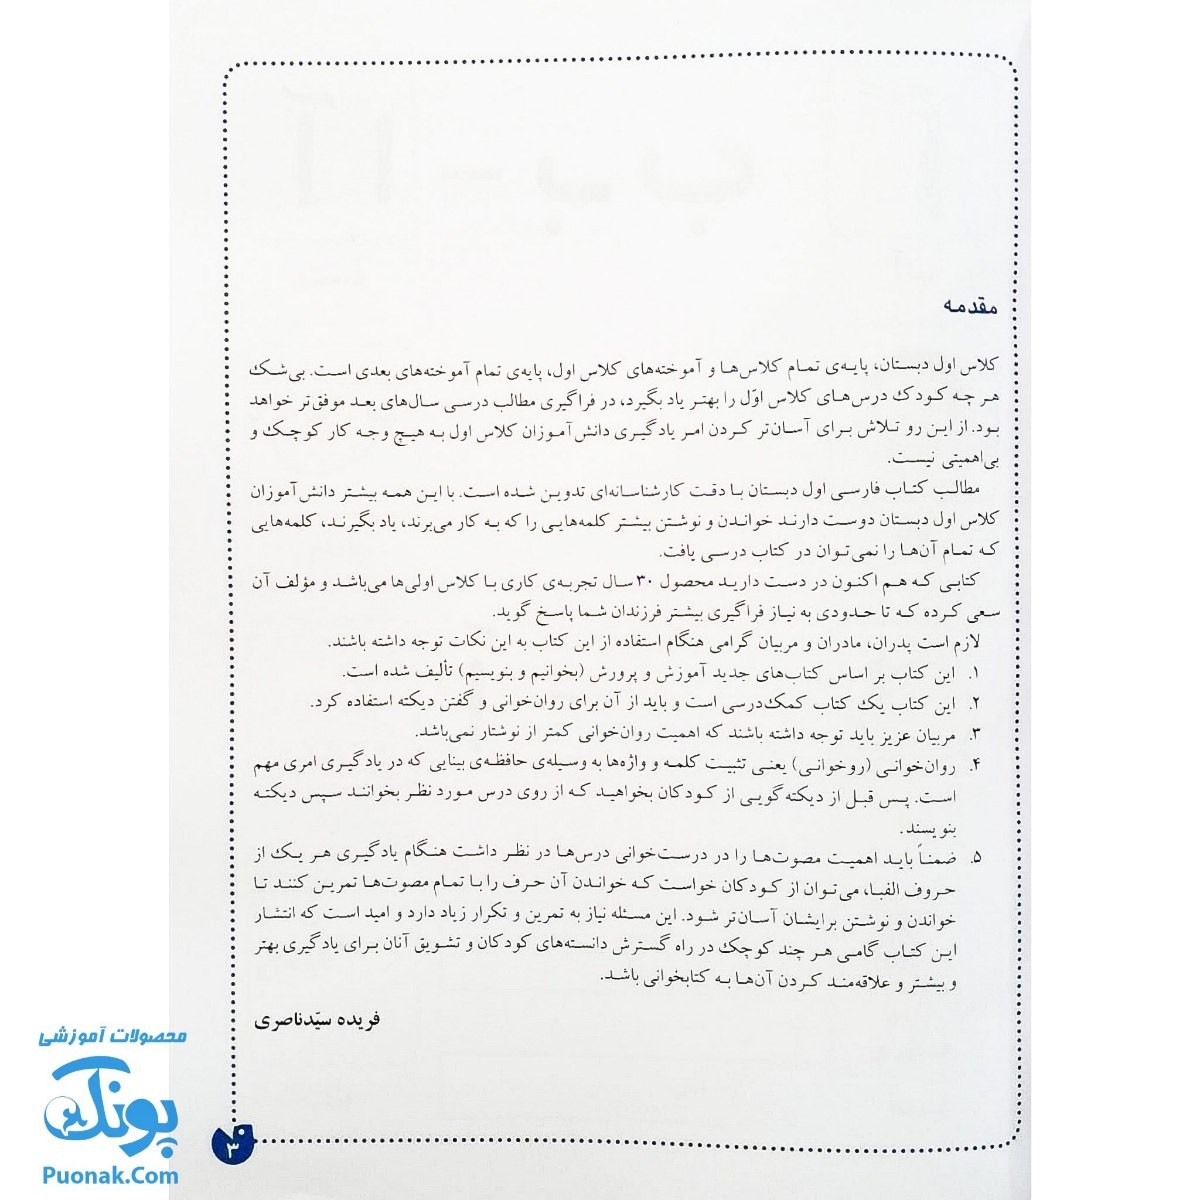 مقدمه
کلاس اول دبستان، پایه‌ی تمام کلاس‌ها و آموخته‌های کلاس اول، پایه‌ی تمام آموخته‌های بعدی است. بی‌شک
هر چه کودک درس‌های کلاس اوّل را بهتر یاد بگیرد، در فراگیری مطالب درسی سال‌های بعد موفق‌تر خواهد
بود. از این رو تلاش برای آسان‌تر کردن امر یادگیری دانش‌آموزان کلاس اول به هیچ وجه کار کوچک و
بی‌اهمیتی نیست.
مطالب کتاب فارسی اول دبستان با دقت کارشناسانه‌ای تدوین شده است. با این همه بیشتر دانش‌آموزان
کلاس اول دبستان دوست دارند خواندن و نوشتن بیشتر کلمه‌هایی را که به کار می‌برند، یاد بگیرند، کلمه‌هایی
که تمام آن‌ها را نمی‌توان در کتاب درسی یافت.
کتابی که هم اکنون در دست دارید محصول ۳۰ سال تجربه‌ی کاری با کلاس اولی‌ها می‌باشد و مؤلف آن
سعی کرده که تا حدودی به نیاز فراگیری بیشتر فرزندان شما پاسخ گوید.
لازم است پدران، مادران و مربیان گرامی هنگام استفاده از این کتاب به این نکات توجه داشته باشند.
۱. این کتاب بر اساس کتاب‌های جدید آموزش و پرورش (بخوانیم و بنویسیم) تألیف شده است.
۲. این کتاب یک کتاب کمک‌درسی است و باید از آن برای روان‌خوانی و گفتن دیکته استفاده کرد.
۳. مربیان عزیز باید توجه داشته باشند که اهمیت روان‌خوانی کمتر از نوشتار نمی‌باشد.
۴. روان‌خوانی (روخوانی) یعنی تثبیت کلمه و واژه‌ها به وسیله‌ی حافظه‌ی بینایی که در یادگیری امری مهم
است. پس قبل از دیکته‌گویی از کودکان بخواهید که از روی درس مورد نظر بخوانند سپس دیکته
بنویسند.
۵. ضمناً باید اهمیت مصوت‌ها را در درست‌خوانی درس‌ها در نظر داشت هنگام یادگیری هر یک از
حروف الفبا، می‌توان از کودکان خواست که خواندن آن حرف را با تمام مصوت‌ها تمرین کنند تا
خواندن و نوشتن برایشان آسان‌تر شود. این مسئله نیاز به تمرین و تکرار زیاد دارد و امید است که انتشار
این کتاب گامی هر چند کوچک در راه گسترش دانسته‌های کودکان و تشویق آنان برای یادگیری بهتر
و بیشتر و علاقه‌مند کردن آن‌ها به کتابخوانی باشد.
فریده سیّدناصری
محصولات آموزشی
پونک
Puonak.Com
۳